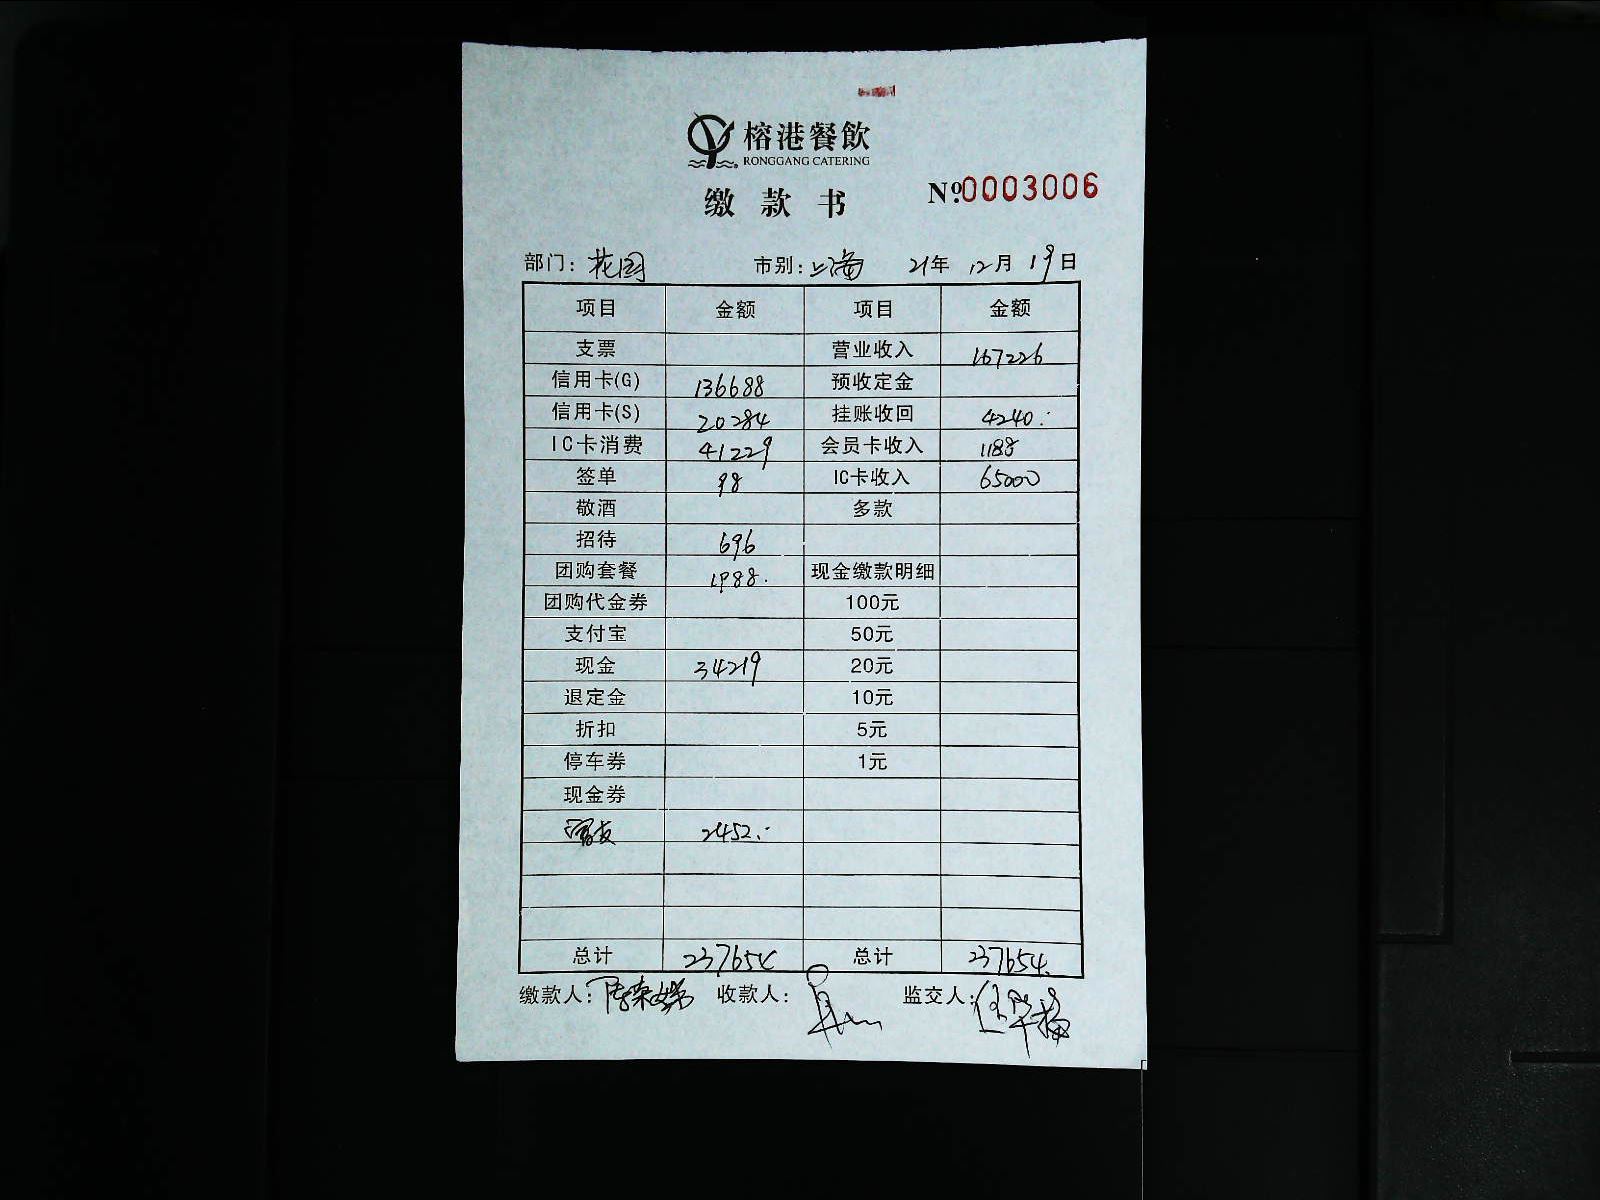 榕港餐飲
RONGGANG CATERING
缴款书
Nº.0003006
部门：花园 市别：上海 21年 12月 19日
项目 金额 项目 金额
支票 营业收入 167226
信用卡(G) 136688 预收定金
信用卡(S) 20284 挂账收回 4240.
IC卡消费 41229 会员卡收入 1188
签单 98 IC卡收入 65000
敬酒 多款
招待 696
团购套餐 1988. 现金缴款明细
团购代金券 100元
支付宝 50元
现金 34219 20元
退定金 10元
折扣 5元
停车券 1元
现金券
2452.-
总计 237654 总计 237654.
缴款人： 收款人： 监交人：